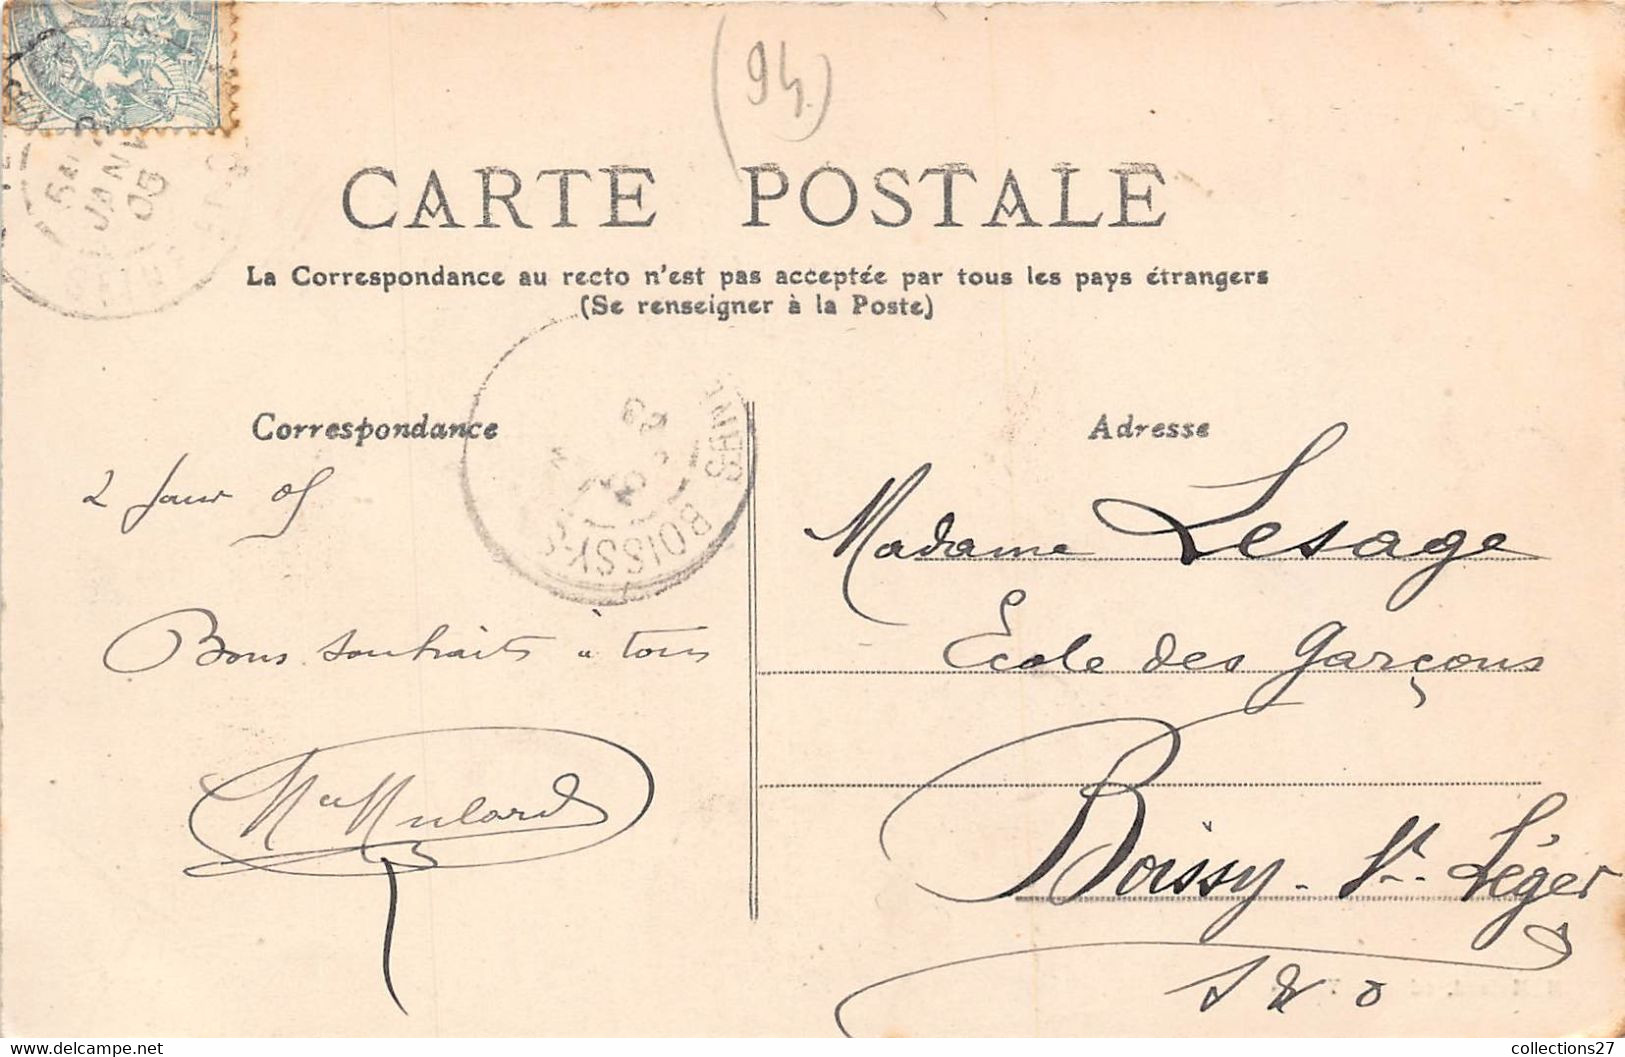 (94)
CARTE POSTALE
La Correspondance au recto n'est pas acceptée par tous les pays étrangers
(Se renseigner à la Poste)
JANV
05
BOISSY-S
Correspondance
2 Janv 05
Bons souhaits à tous
Mulard
Adresse
Madame Lesage
École des garçons
Boissy-St-Léger
S & O
collections27